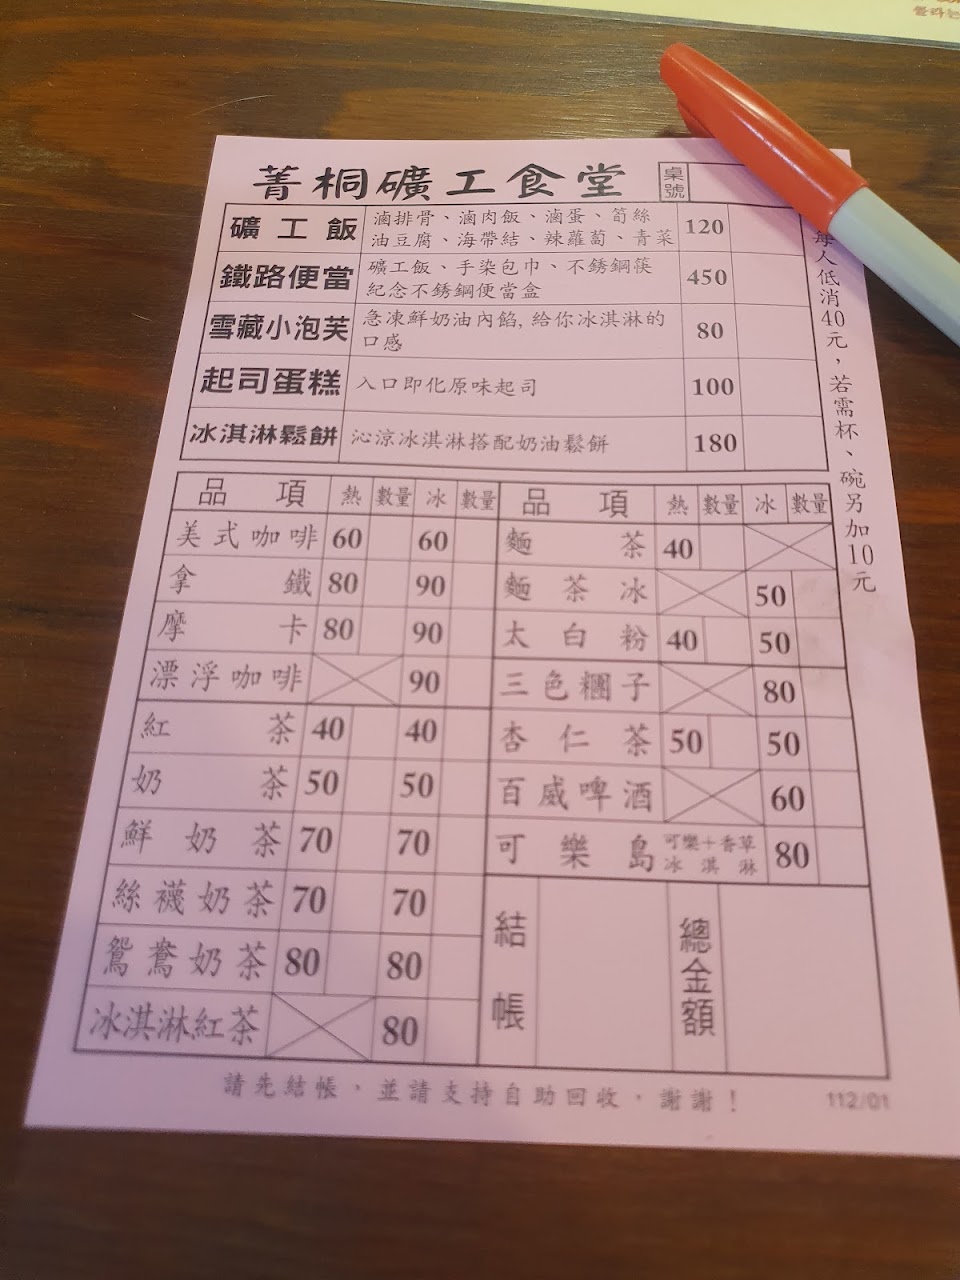 菁桐礦工食堂 桌號
礦工飯 滷排骨、滷肉飯、滷蛋、筍絲 120
油豆腐、海帶結、辣蘿蔔、青菜
鐵路便當 礦工飯、手染包巾、不銹鋼筷 450
紀念不銹鋼便當盒
雪藏小泡芙 急凍鮮奶油內餡, 給你冰淇淋的 80
口感
起司蛋糕 入口即化原味起司 100
冰淇淋鬆餅 沁涼冰淇淋搭配奶油鬆餅 180
每人低消40元，若需杯、碗另加10元
品項 熱 數量 冰 數量
美式咖啡 60 60
拿鐵 80 90
摩卡 80 90
漂浮咖啡 90
紅茶 40 40
奶茶 50 50
鮮奶茶 70 70
絲襪奶茶 70 70
鴛鴦奶茶 80 80
冰淇淋紅茶 80
品項 熱 數量 冰 數量
麵茶 40
麵茶冰 50
太白粉 40 50
三色糰子 80
杏仁茶 50 50
百威啤酒 60
可樂島 可樂＋香草 80
冰淇淋
結帳 總金額
請先結帳，並請支持自助回收，謝謝！ 112/01